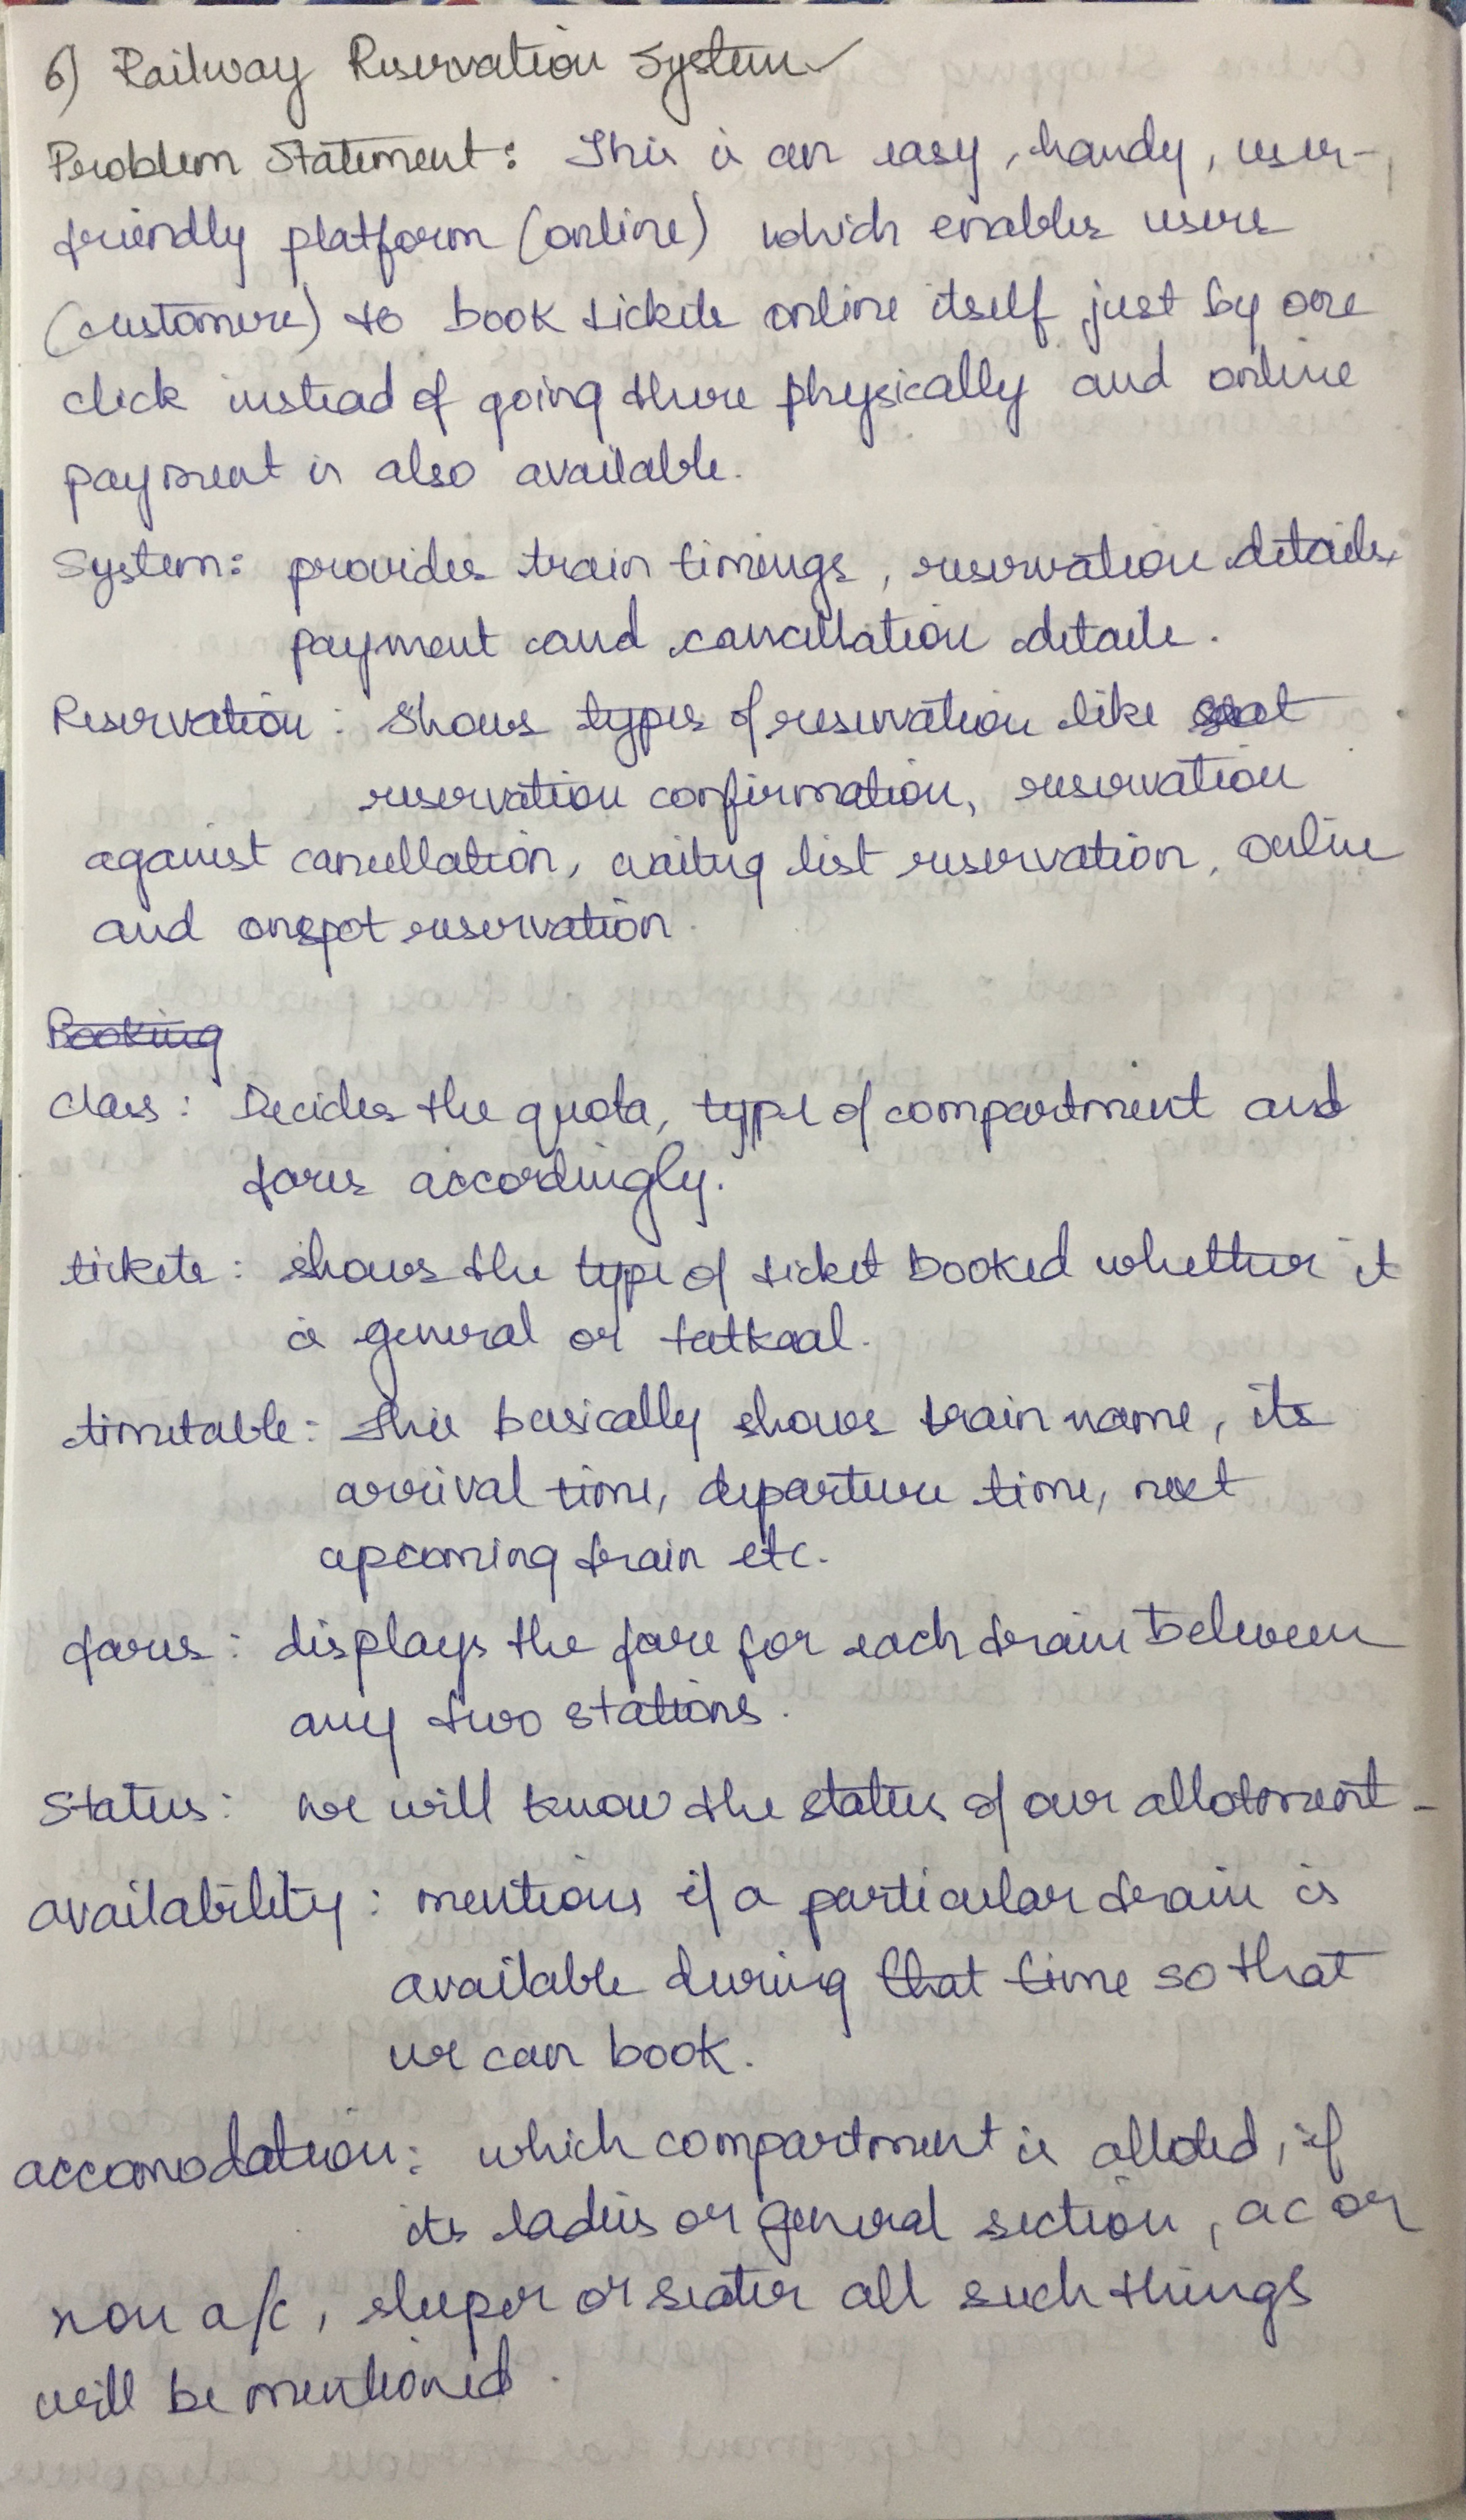 6) Railway Reservation System
Problem Statement: This is an easy, handy, user-
friendly platform (online) which enables users
(customers) to book tickets online itself just by one
click instead of going there physically and online
payment is also available.
System: provides train timings, reservation details,
payment and cancellation details.
Reservation: Shows types of reservation like seat
reservation confirmation, reservation
against cancellation, waiting list reservation, online
and onspot reservation.
Booking
class: Decides the quota, type of compartment and
fares accordingly.
tickets: shows the type of ticket booked whether it
is general or tatkaal.
timetable: this basically shows train name, its
arrival time, departure time, next
upcoming train etc.
fares: displays the fare for each train between
any two stations.
Status: we will know the status of our allotment.
availability: mentions if a particular train is
available during that time so that
we can book.
accomodation: which compartment is alloted, if
its ladies or general section, ac or
non a/c, sleeper or seater all such things
will be mentioned.